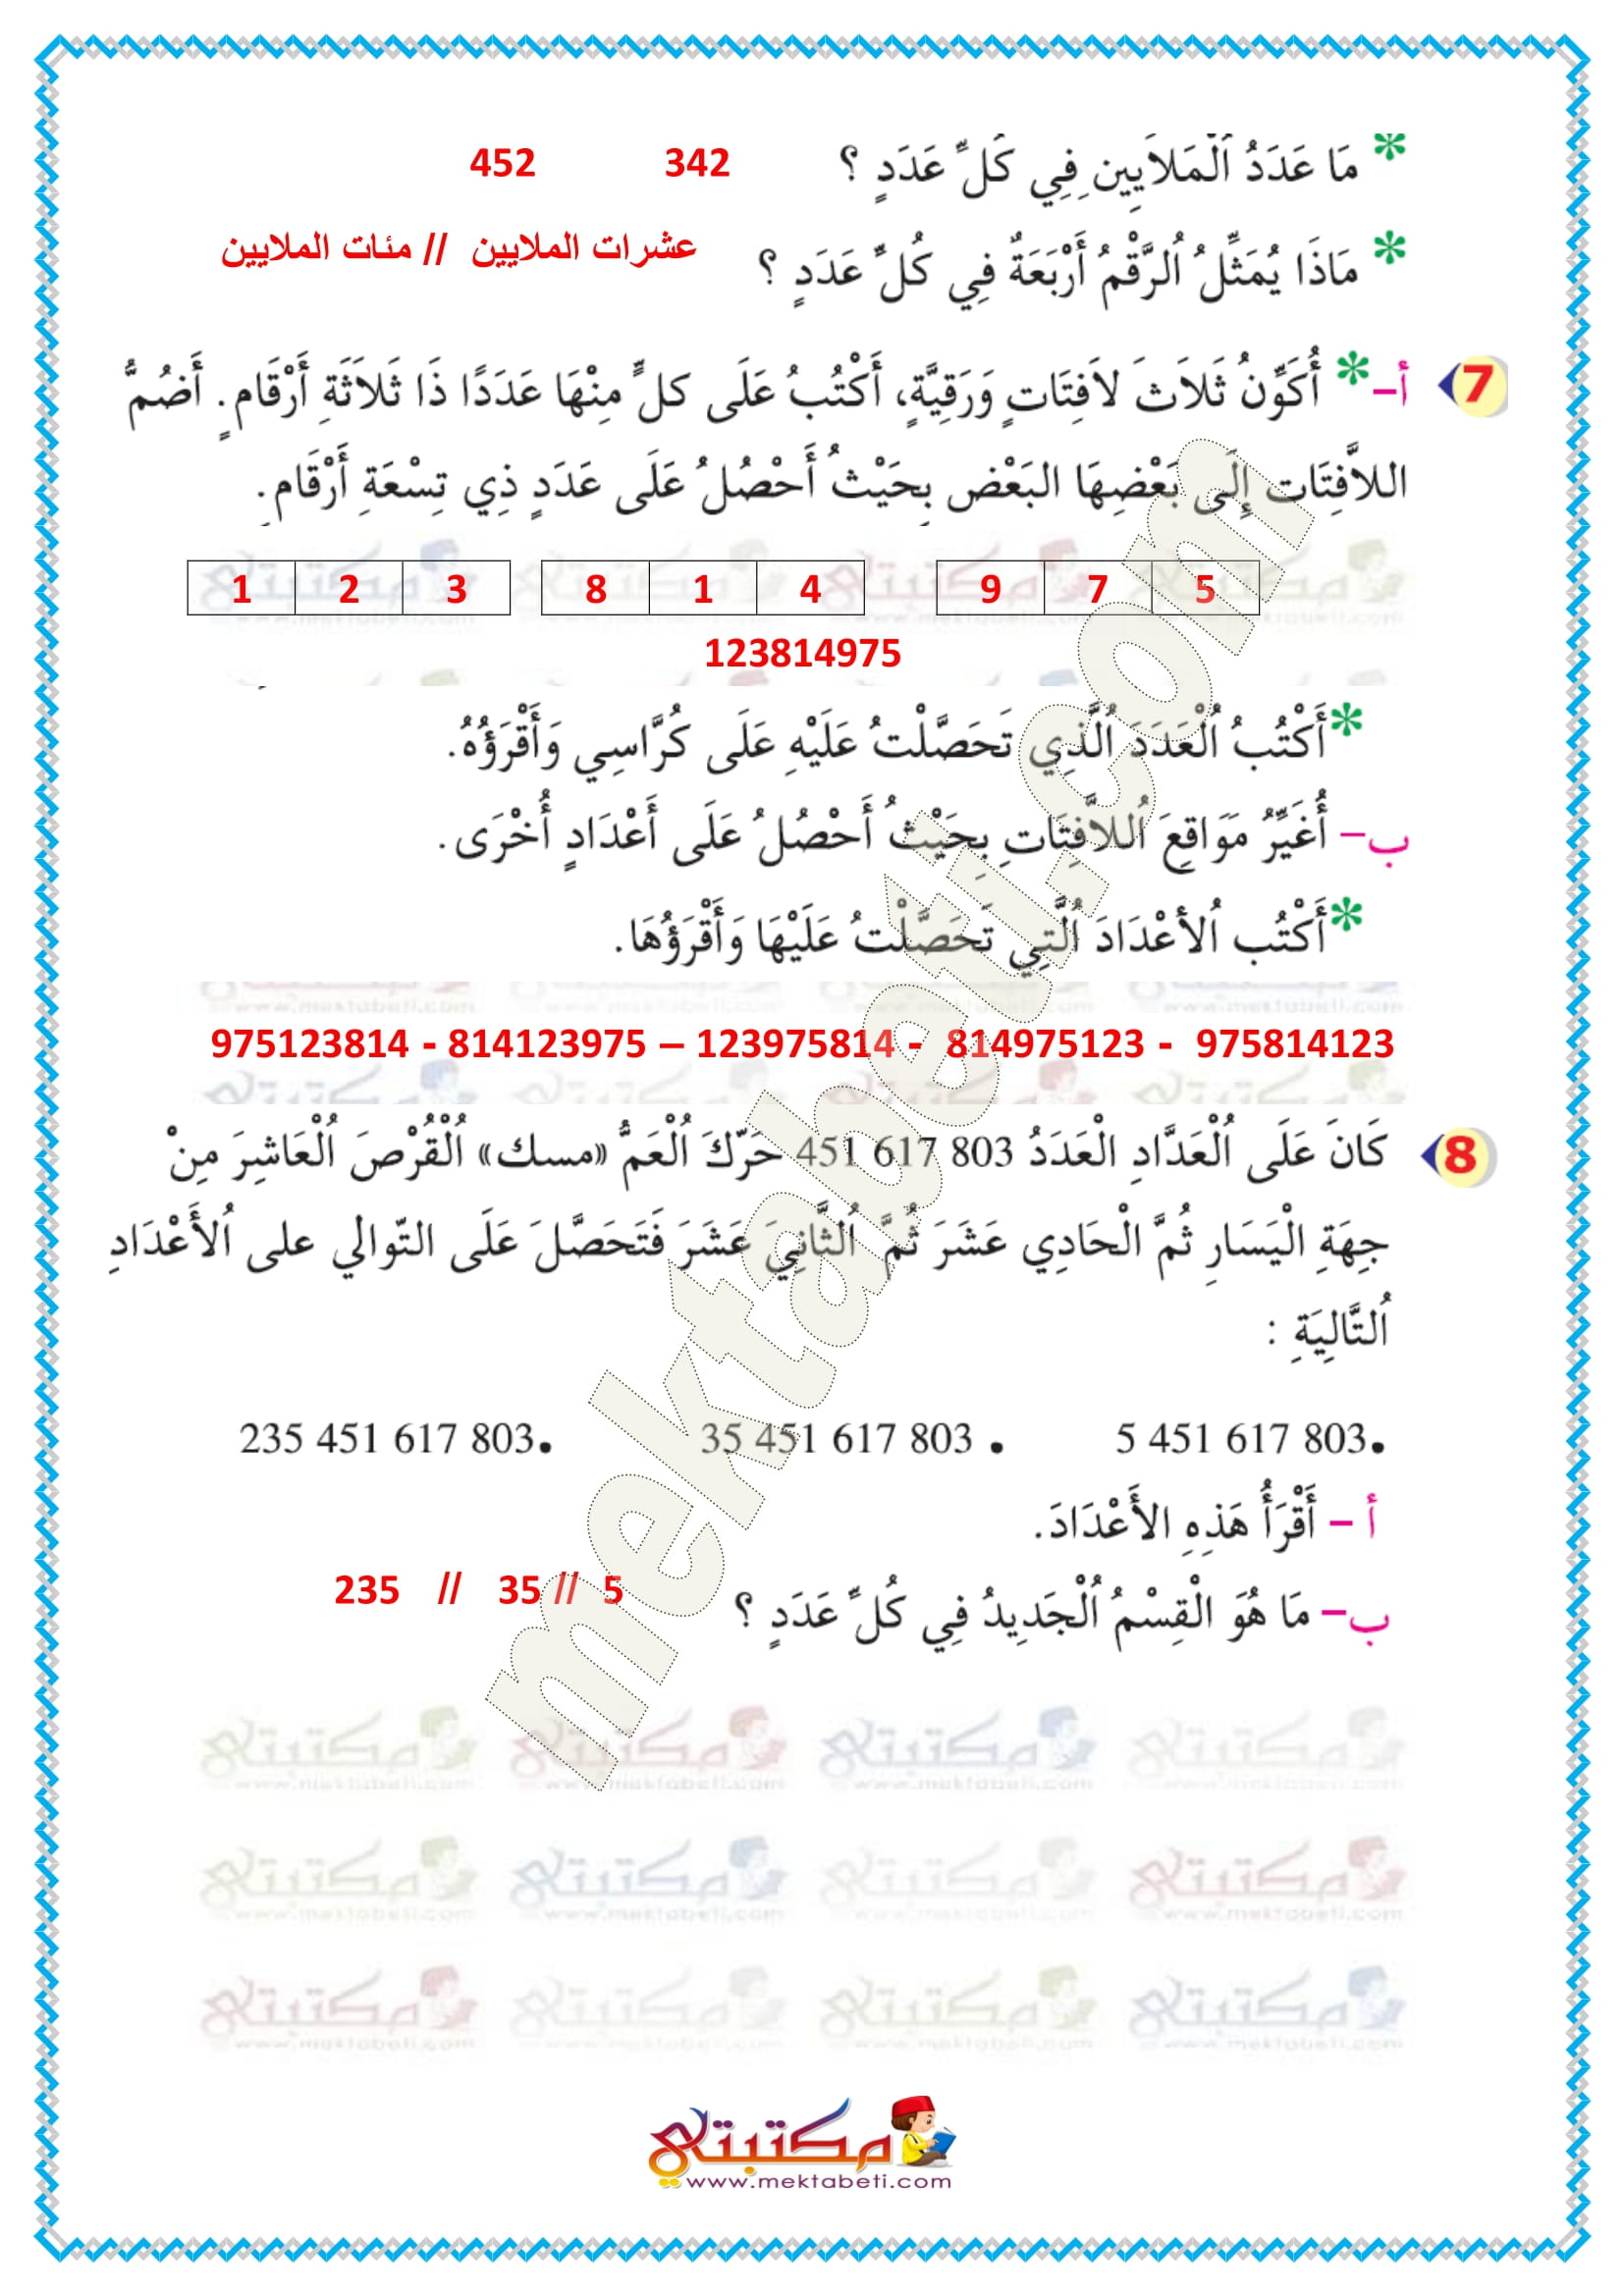 * مَا عَدَدُ اَلْمَلاَيِينِ فِي كَلِّ عَدَدٍ ؟ 342 452
* مَاذَا يُمَثِّلُ اُلرَّقْمُ أَرْبَعَةٌ فِي كُلِّ عَدَدٍ ؟ عشرات الملايين // مئات الملايين
7 أ-* أُكَوِّنُ ثَلاَثَ لاَفِتَاتٍ وَرَقِيَّةٍ، أَكْتُبُ عَلَى كلٍّ مِنْهَا عَدَدًا ذَا ثَلاَثَةِ أَرْقَامٍ. أَضُمُّ
اللاَّفِتَاتِ إِلَى بَعْضِهَا البَعْضِ بِحَيْثُ أَحْصُلُ عَلَى عَدَدٍ ذِي تِسْعَةِ أَرْقَامٍ.
1 2 3 8 1 4 9 7 5
123814975
* أَكْتُبُ اُلْعَدَدَ اُلَّذِي تَحَصَّلْتُ عَلَيْهِ عَلَى كُرَّاسِي وَأَقْرَؤُهُ.
ب- أُغَيِّرُ مَوَاقِعَ اُللاَّفِتَاتِ بِحَيْثُ أَحْصُلُ عَلَى أَعْدَادٍ أُخْرَى.
* أَكْتُب اُلأَعْدَادَ اُلَّتِي تَحَصَّلْتُ عَلَيْهَا وَأَقْرَؤُهَا.
975123814 - 814123975 – 123975814 - 814975123 - 975814123
8 كَانَ عَلَى اُلْعَدَّادِ الْعَدَدُ 803 617 451 حَرّكَ اُلْعَمُّ «مسك» اُلْقُرْصَ اُلْعَاشِرَ مِنْ
جِهَةِ الْيَسَارِ ثُمَّ الْحَادِي عَشَرَ ثُمَّ اُلثَّانِيَ عَشَرَ فَتَحَصَّلَ عَلَى التّوالي على اُلأَعْدَادِ
اُلتَّالِيَةِ :
.5 451 617 803 . 35 451 617 803 .235 451 617 803
أ - أَقْرَأُ هَذِهِ الأَعْدَادَ.
ب- مَا هُوَ الْقِسْمُ اُلْجَدِيدُ فِي كُلِّ عَدَدٍ ؟ 235 // 35 // 5
mektabeti.com
مكتبتي
www.mektabeti.com